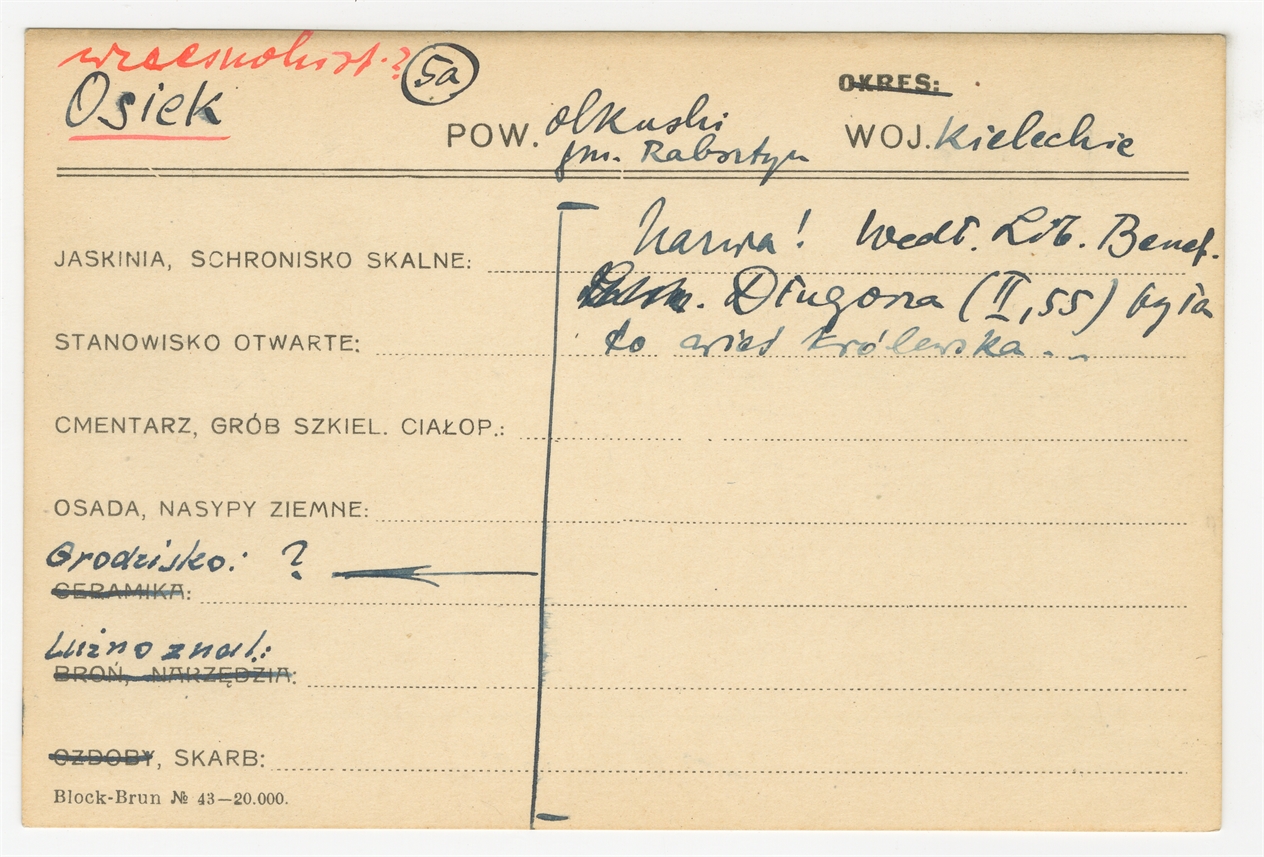 wczesnohist.?
Osiek
5a
OKRES:
POW. olkuski
gm. Rabsztyn
WOJ. Kieleckie
Nazwa! Wedł. Lib. Benef.
JASKINIA, SCHRONISKO SKALNE:
Długosza (II, 55) była
STANOWISKO OTWARTE:
to wieś królewska.
CMENTARZ, GRÓB SZKIEL. CIAŁOP.:
OSADA, NASYPY ZIEMNE:
Grodzisko: ?
CERAMIKA:
Luźno znal.:
BROŃ, NARZĘDZIA:
OZDOBY, SKARB:
Block-Brun № 43—20.000.